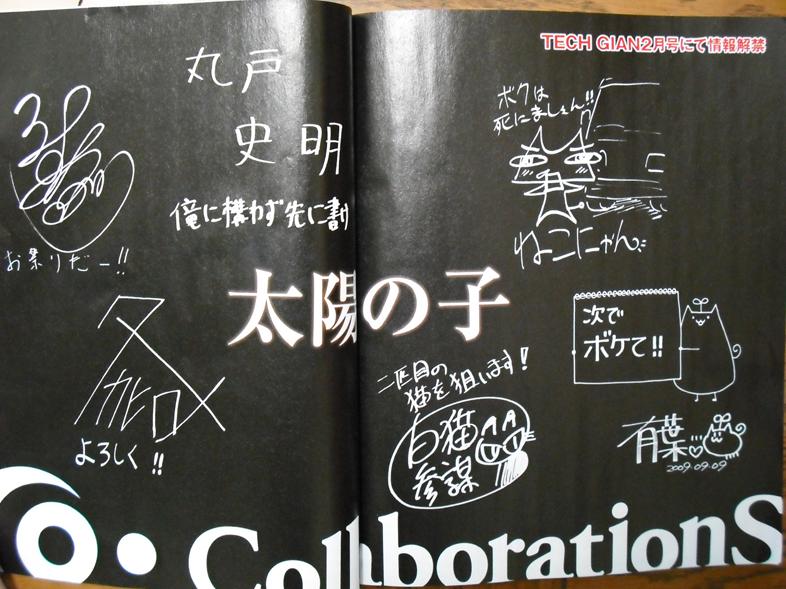 TECH GIAN2月号にて情報解禁
丸戸
史明
俺に構わず先に書け
お祭りだー!!
タカヒロ
よろしく!!
太陽の子
ボクは
死にましぇん!!
ねこにゃん
次で
ボケて!!
二匹目の
猫を狙います!
白猫
参謀
有葉
2009-09-09
CollaborationS